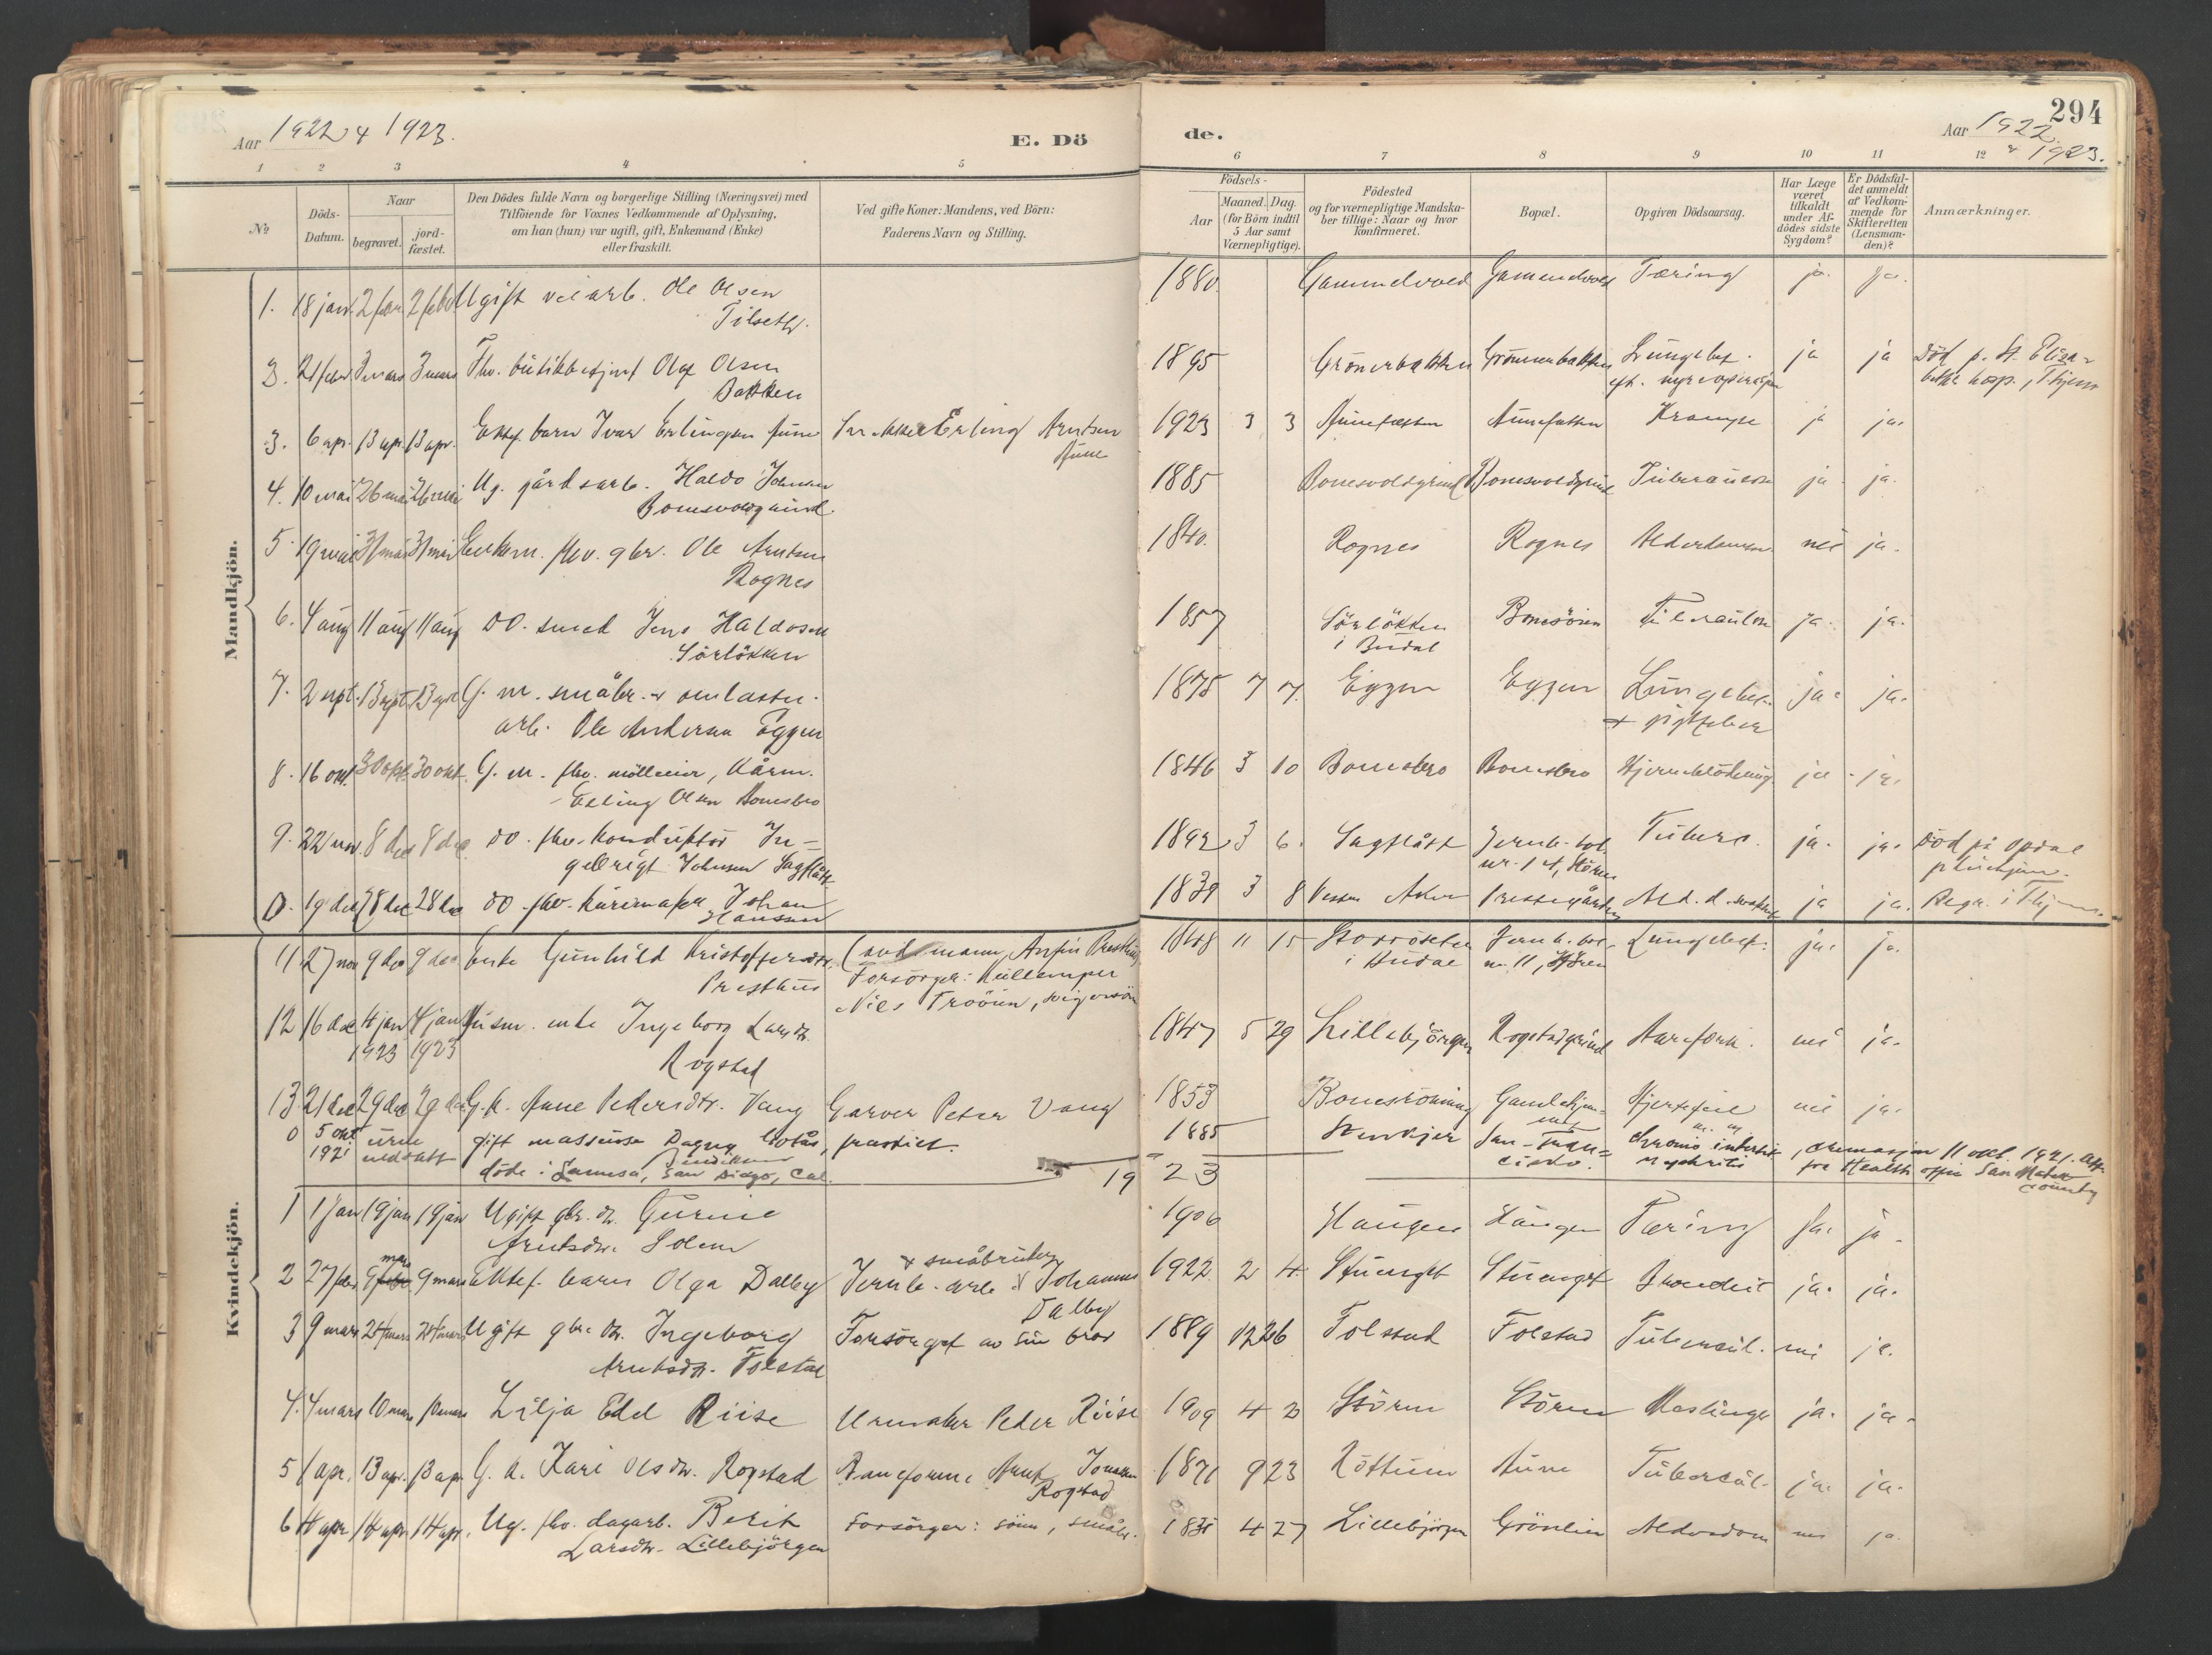 294
Aar 1922 & 1923.
E. Dö
de.
Aar 1922
& 1923.
1 2 3 4 5 6 7 8 9 10 11 12
№
Döds-
Datum.
Naar
begravet.
jord-
fæstet.
Den Dödes fulde Navn og borgerlige Stilling (Næringsvei) med
Tilföiende for Voxnes Vedkommende af Oplysning,
om han (hun) var ugift, gift, Enkemand (Enke)
eller fraskilt.
Ved gifte Koner: Mandens, ved Börn:
Faderens Navn og Stilling.
Födsels-
Aar
Maaned. Dag.
(for Börn indtil
5 Aar samt
Værnepligtige).
Födested
og for værnepligtige Mandska-
ber tillige: Naar og hvor
konfirmeret.
Bopæl.
Opgiven Dödsaarsag.
Har Læge
været
tilkaldt
under Af-
dödes sidste
Sygdom?
Er Dödsfal-
det anmeldt
af Vedkom-
mende for
Skifteretten
(Lensman-
den)?
Anmærkninger.
Mandkjön.
1. 18 jan. 2 febr. 2 febr. Ugift veiarb. Ole Olsen 1880 Gammelvold Gammelvold Tæring ja. ja.
Tilseth.
2. 21 febr. 3 mars 3 mars Fhv. butikbetjent Olaf Olsen 1895 Grönerbakken Grönnerbakken Lungebet. ja ja Död p. St. Eliza-
Bakken eft. nyreoperasjon beth hosp., Thjem
3. 6 apr. 13 apr. 13 apr. Ektef. barn Ivar Erlingsen Aune Erling Arntsen 1923 3 3 Krampe ja ja.
Aune
4. 10 mai 26 mai 26 mai Ug. gårdsarb. Haldo Johnsen 1885 Bonesvoldgrind Bonesvoldgrind ja ja.
Bonesvoldgrind.
5. 19 mai 31 mai 31 mai Enkem. fhv. gbr. Ole Arntsen 1840. Rognes Rognes nei ja.
Rognes
6. 4 aug 11 aug 11 aug DO. smed Jens Haldosen 1857 Sörlökken Bonesöien ja. ja.
Sörlökken i Budal
7. 2 sept. 13 sept. 13 sept G. m. småbr. & 1875 7 7. Eggen Eggen Lungebet. ja. ja.
arb. Ole Andersen Eggen & gigtfeber
8. 16 okt. 30 okt. 30 okt. G. m. fhv. möller, 1846 3 10 Bonesbro Bonesbro Hjerneblödning ja ja.
Erling Olsen Bonesbro
9. 22 nov. 8 dec 8 dec DO. fhv. konduktör In- 1892 3 6. Sagflått Jernb. bol. Tuberc. ja. ja. Död på Opdal
gebrigt Johnsen Sagflått nr. 14, Stören pleiehjem.
0. 19 dec 28 dec 28 dec DO fhv. Johan 1839 3 8 Vestre Aker Prestegården Ald. d. svakhet ja ja. Begr. i Thjem.
Hansen
11. 27 nov 9 dec 9 dec Enke Gunhild Kristoffersdtr. 1848 11 15 Storröseter Jernb. bol. Lungebet. ja. ja.
Presthus Forsörger: i Budal nr. 11, Stören
Nils Troöien, svigersön
12 16 dec 4 jan 4 jan Husm. enke Ingeborg Larsdtr. 1847 5 29 Lillebjörgen Rogstadgrind Aarefork. nei ja.
1923 1923 Rogstad
13 21 dec 29 dec 29 dec G. k. Anne Pedersdtr. Vang Garver Peter Vang 1853 Bonesröning Hjertefeil nei ja.
0 5 okt urne gift massöse Dagny fraskilt. 1885 Stenkjer San-Fran- chronic interstit. , cremasjon 11 okt. 1921. Att.
1921 nedsatt cisko. nephritis fra Health office San Mateo
döde i Lamesa, San Diego, Cal. County
1923
Kvindekjön.
1 1 jan 19 jan 19 jan Ugift gbr. dtr. Gurine 1906 Haugen Haugen Tæring ja. ja.
Arntsdtr. Solem
2 27 febr 9 mars 9 mars Ektef. barn Olga Dalby Jernb. arb. & småbruker Johannes 1922 2 4. Bronchit ja. ja.
Dalby
3 9 mars 24 mars 24 mars Ugift gbr. dtr. Ingeborg Forsörget av sin bror 1889 12 26 Folstad Folstad Tubercul. nei ja.
Arntsdtr. Folstad
4. 4 mars 10 mars 10 mars Lilja Edel Riise Urmaker Peder Riise 1909 4 2 Stören Stören Meslinger ja. ja.
5 1 apr. 13 apr. 13 apr. G. k. Kari Olsdtr. Rogstad Baneform. Arnt 1871 9 23 Röttum Aune Tubercul. ja. ja.
Rogstad
6 4 apr 14 apr 14 apr. Ug. fhv. dagarb. Berit Forsörger: sönn, småbr. 1835 4 27 Lillebjörgen Grönlien Alderdom nei ja.
Larsdtr. Lillebjörgen